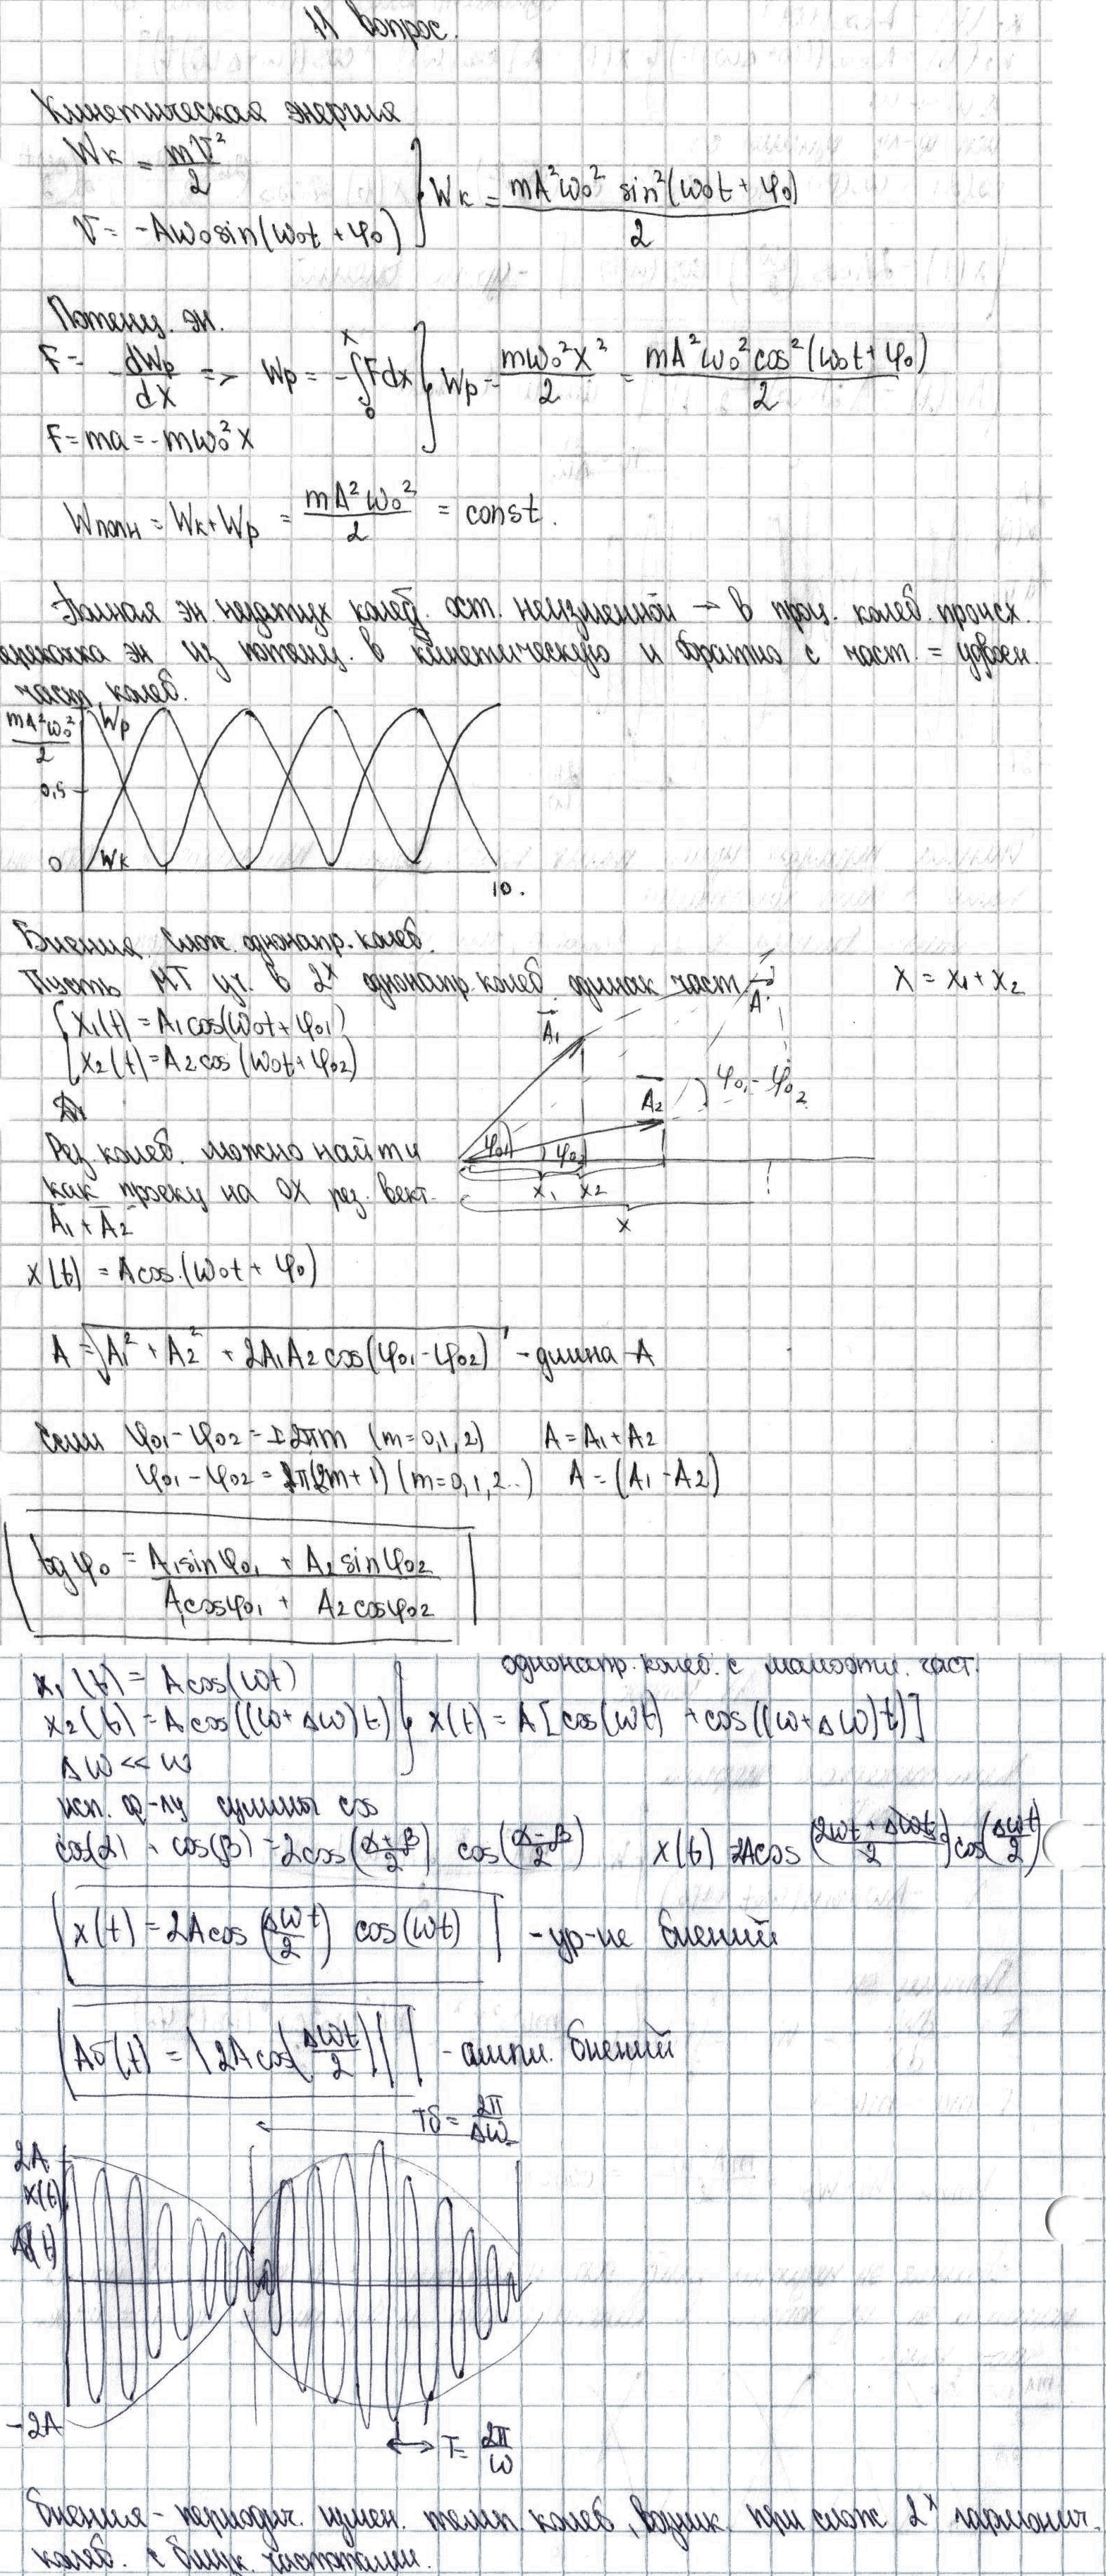 11 вопрос.
Кинетическая энергия
Wк = mV²/2
V = -Aω₀sin(ω₀t + φ₀) } Wк = mA²ω₀² sin²(ω₀t + φ₀)/2
Потенц. эн.
F = -dWp/dx => Wp = -∫₀ˣFdx } Wp = mω₀²x²/2 = mA²ω₀²cos²(ω₀t + φ₀)/2
F = ma = -mω₀²x
Wполн = Wк + Wp = mA²ω₀²/2 = const.
Полная эн. незатух колеб. ост. неизменной – в проц. колеб. происх.
ерекачка эн из потенц. в кинетическую и обратно с част. = удвоен.
част. колеб.
mA²ω₀²/2 Wp
0,5
0 Wк 10.
Биения. Слож. однонапр. колеб.
Пусть МТ уч. в 2ˣ однонапр. колеб. одинак част. A x = x₁ + x₂
{ x₁(t) = A₁cos(ω₀t + φ₀₁) A₁
x₂(t) = A₂cos(ω₀t + φ₀₂) A₂ φ₀₁ - φ₀₂
Рез. колеб. можно найти φ₀₁ φ₀₂
как проекц на OX рез. вект. x₁ x₂
A₁ + A₂ x
x(t) = Acos.(ω₀t + φ₀)
A = √(A₁² + A₂² + 2A₁A₂cos(φ₀₁ - φ₀₂)) - длина A
Если φ₀₁ - φ₀₂ = ±2πm (m = 0,1,2) A = A₁ + A₂
φ₀₁ - φ₀₂ = π(2m + 1) (m = 0,1,2..) A = (A₁ - A₂)
tgφ₀ = (A₁sinφ₀₁ + A₂sinφ₀₂)/(A₁cosφ₀₁ + A₂cosφ₀₂)
однонапр. колеб. с част.
x₁(t) = Acos(ωt)
x₂(t) = Acos((ω + Δω)t) } x(t) = A[cos(ωt) + cos((ω + Δω)t)]
Δω << ω
исп. ф-лу суммы cos
cos(α) + cos(β) = 2cos((α+β)/2) cos((α-β)/2) x(t) = 2Acos((2ωt + Δωt)/2)cos(Δωt/2)
x(t) = 2Acos(Δωt/2) cos(ωt) - ур-ие биений
Aб(t) = |2Acos(Δωt/2)| - ампл. биений
Tб = 2π/Δω
2A
x(t)
Aб(t)
-2A
T = 2π/ω
биения - периодич. измен. колеб, возник. при слож 2ˣ гармонич.
колеб. с близк. частотами.